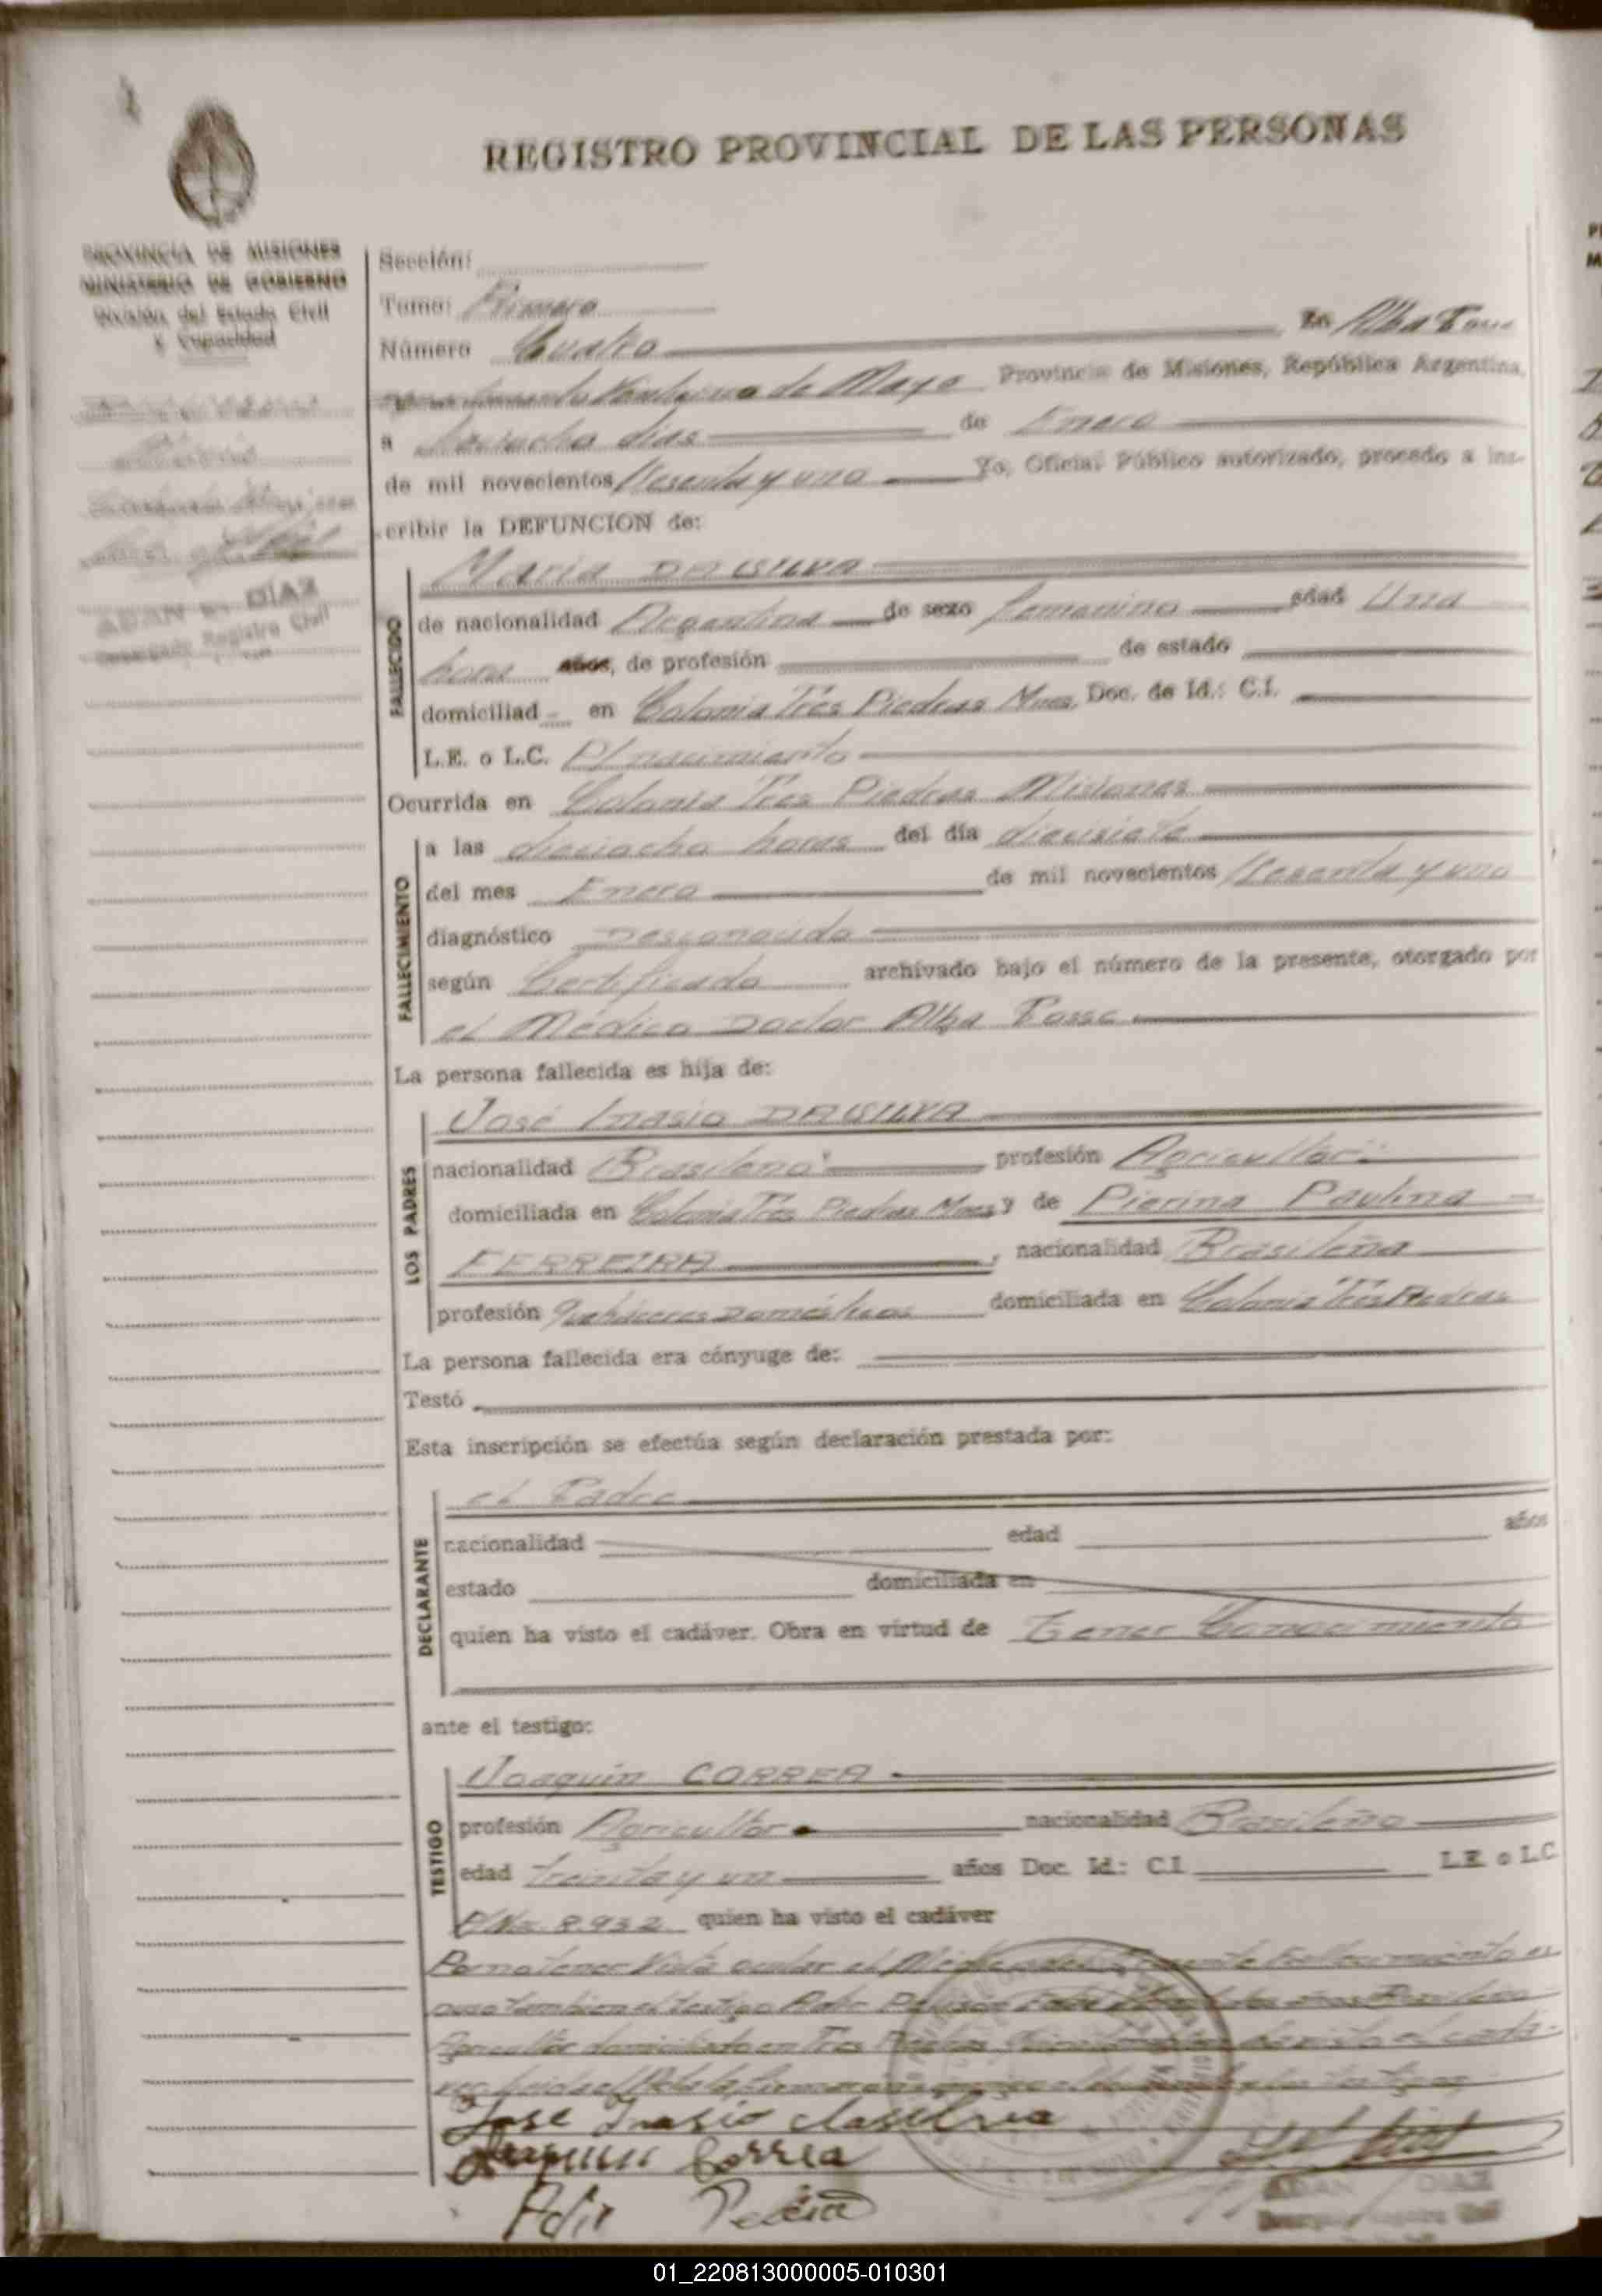 REGISTRO PROVINCIAL DE LAS PERSONAS
PROVINCIA DE MISIONES
MINISTERIO DE GOBIERNO
División del Estado Civil
y Capacidad
ADAN DIAZ
Registro Civil
Sección:
Tomo: Primero
Número Cuatro En Alba Posse
Veinticinco de Mayo Provincia de Misiones, República Argentina,
a dieciocho días de Enero
de mil novecientos sesenta y uno Yo, Oficial Público autorizado, procedo a ins-
cribir la DEFUNCION de:
FALLECIDO
María DASILVA
de nacionalidad Argentina de sexo femenino edad Una
hora años, de profesión de estado
domiciliad en Colonia Tres Piedras Mnes. Doc. de Id.: C.I.
L.E. o L.C. P/nacimiento
Ocurrida en Colonia Tres Piedras Misiones
FALLECIMIENTO
a las dieciocho horas del día diecisiete
del mes Enero de mil novecientos sesenta y uno
diagnóstico Desconocido
según Certificado archivado bajo el número de la presente, otorgado por
el Médico Doctor Alba Posse
La persona fallecida es hija de:
LOS PADRES
José Inasio DASILVA
nacionalidad Brasileño profesión Agricultor
domiciliada en Colonia Tres Piedras Mnes y de Pierina Paulina
FERREIRA, nacionalidad Brasileña
profesión Quehaceres Domésticos domiciliada en Colonia Tres Piedras
La persona fallecida era cónyuge de:
Testó
Esta inscripción se efectúa según declaración prestada por:
DECLARANTE
el Padre
nacionalidad edad años
estado domiciliada en
quien ha visto el cadáver. Obra en virtud de Tener Conocimiento
ante el testigo:
TESTIGO
Joaquín CORREA
profesión Agricultor nacionalidad Brasileño
edad treinta y un años Doc. Id.: C.I. L.E. o L.C.
8.932 quien ha visto el cadáver
Por no tener Vista ocular el Médico del Presente Fallecimiento
también el testigo Adir
Agricultor domiciliado en Tres Piedras
José Inasio dasilva
Joaquin Correa
Adir
ADAN DIAZ
01_220813000005-010301